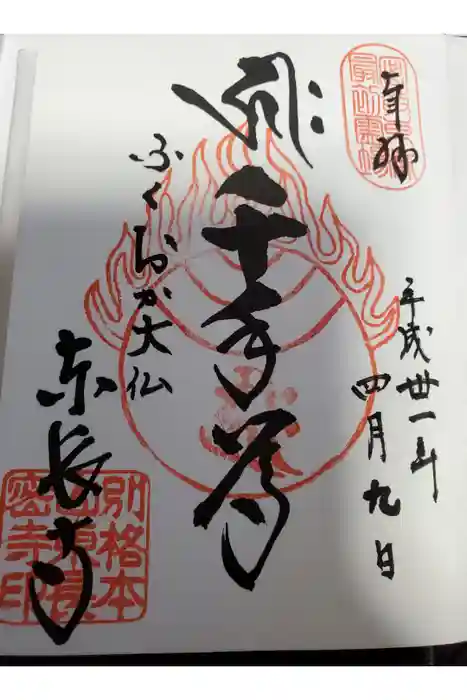 奉拝
平成卅一年
四月九日
千手尊
ふくおか大仏
東長寺
別格本
山東長
密寺印